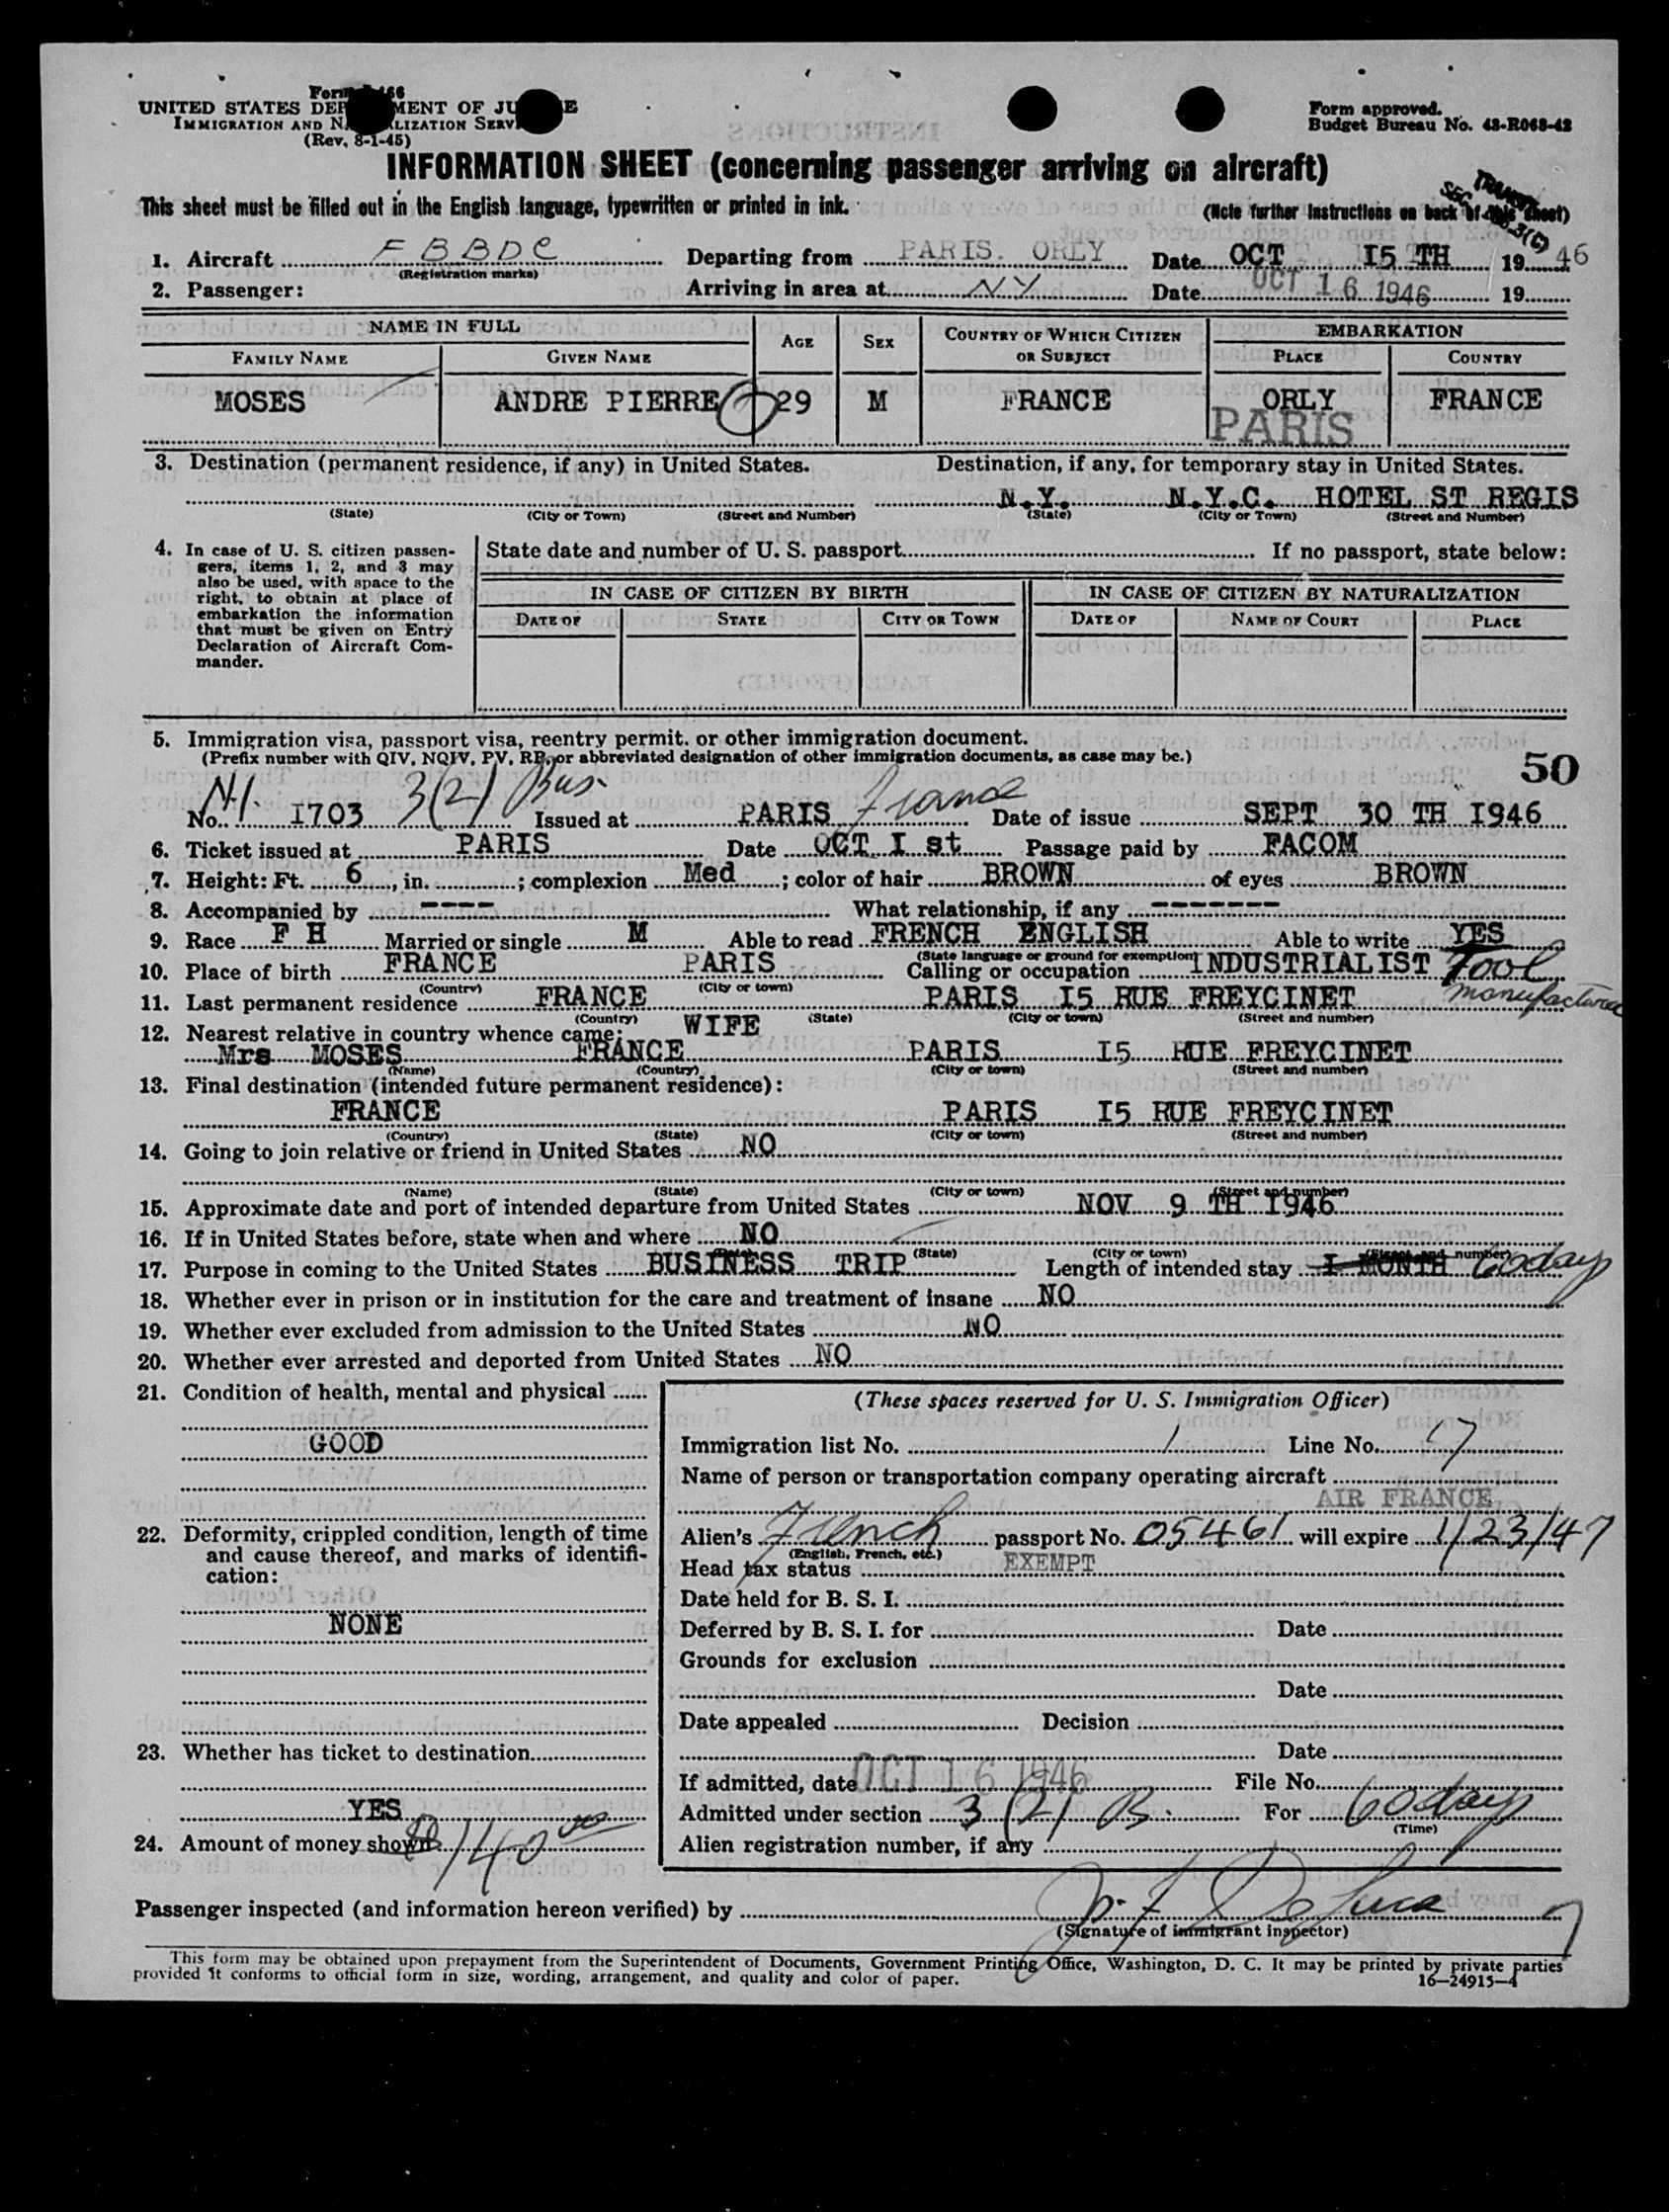 Form I-466
UNITED STATES DEPARTMENT OF JUSTICE
IMMIGRATION AND NATURALIZATION SERVICE
(Rev. 8-1-45)
Form approved.
Budget Bureau No. 43-R068-42
INFORMATION SHEET (concerning passenger arriving on aircraft)
This sheet must be filled out in the English language, typewritten or printed in ink.
(Note further instructions on back of this sheet)
TRANSIT
SEC. 3(C)
1. Aircraft F B B D C Departing from PARIS. ORLY Date OCT I5 TH 19 46
(Registration marks)
2. Passenger: Arriving in area at NY Date OCT 16 1946 19
NAME IN FULL AGE SEX COUNTRY OF WHICH CITIZEN OR SUBJECT EMBARKATION
FAMILY NAME GIVEN NAME PLACE COUNTRY
MOSES ANDRE PIERRE 29 M FRANCE ORLY FRANCE
PARIS
3. Destination (permanent residence, if any) in United States. Destination, if any, for temporary stay in United States.
N.Y. N.Y.C. HOTEL ST REGIS
(State) (City or Town) (Street and Number) (State) (City or Town) (Street and Number)
4. In case of U. S. citizen passen-
gers, items 1, 2, and 3 may
also be used, with space to the
right, to obtain at place of
embarkation the information
that must be given on Entry
Declaration of Aircraft Com-
mander.
State date and number of U. S. passport If no passport, state below:
IN CASE OF CITIZEN BY BIRTH IN CASE OF CITIZEN BY NATURALIZATION
DATE OF STATE CITY OR TOWN DATE OF NAME OF COURT PLACE
5. Immigration visa, passport visa, reentry permit. or other immigration document.
(Prefix number with QIV, NQIV, PV, RP, or abbreviated designation of other immigration documents, as case may be.)
50
N.I. 3(2) Bus. France
No. I703 Issued at PARIS Date of issue SEPT 30 TH I946
6. Ticket issued at PARIS Date OCT I st Passage paid by FACOM
7. Height: Ft. 6, in. ; complexion Med ; color of hair BROWN of eyes BROWN
8. Accompanied by ---- What relationship, if any -------
9. Race F H Married or single M Able to read FRENCH ENGLISH Able to write YES
(State language or ground for exemption)
10. Place of birth FRANCE PARIS Calling or occupation INDUSTRIALIST Tool
(Country) (City or town) manufacturer
11. Last permanent residence FRANCE PARIS I5 RUE FREYCINET
(Country) (State) (City or town) (Street and number)
12. Nearest relative in country whence came: WIFE
Mrs MOSES FRANCE PARIS I5 RUE FREYCINET
(Name) (Country) (City or town) (Street and number)
13. Final destination (intended future permanent residence):
FRANCE PARIS I5 RUE FREYCINET
(Country) (State) (City or town) (Street and number)
14. Going to join relative or friend in United States NO
(Name) (State) (City or town) (Street and number)
15. Approximate date and port of intended departure from United States NOV 9 TH I946
16. If in United States before, state when and where NO
(State) (City or town) (Street and number)
17. Purpose in coming to the United States BUSINESS TRIP Length of intended stay I MONTH 60 days
18. Whether ever in prison or in institution for the care and treatment of insane NO
19. Whether ever excluded from admission to the United States NO
20. Whether ever arrested and deported from United States NO
21. Condition of health, mental and physical
GOOD
22. Deformity, crippled condition, length of time
and cause thereof, and marks of identifi-
cation:
NONE
23. Whether has ticket to destination
YES
24. Amount of money shown $140 00
(These spaces reserved for U. S. Immigration Officer)
Immigration list No. 1 Line No. 17
Name of person or transportation company operating aircraft
AIR FRANCE
Alien's French passport No. 05461 will expire 1/23/47
(English, French, etc.)
Head tax status EXEMPT
Date held for B. S. I.
Deferred by B. S. I. for Date
Grounds for exclusion
Date
Date appealed Decision
Date
If admitted, date OCT 16 1946 File No.
Admitted under section 3 (2) B. For 60 days
(Time)
Alien registration number, if any
Passenger inspected (and information hereon verified) by
(Signature of immigrant inspector)
This form may be obtained upon prepayment from the Superintendent of Documents, Government Printing Office, Washington, D. C. It may be printed by private parties
provided it conforms to official form in size, wording, arrangement, and quality and color of paper.
16—24915-4